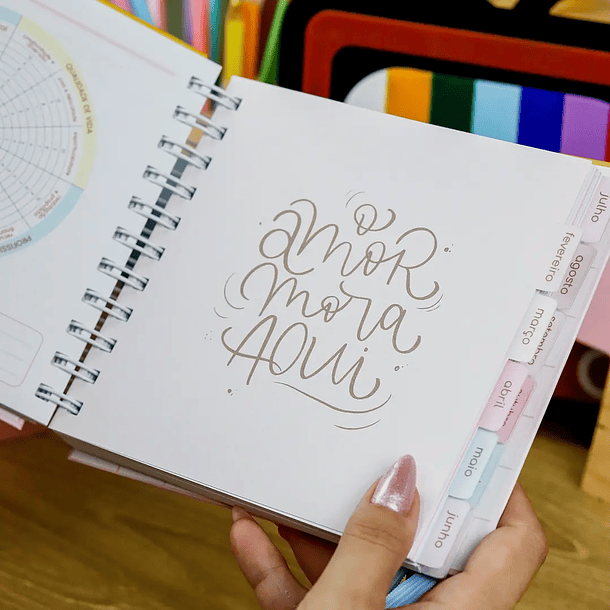 QUALIDADE DE VIDA
O
AMOR
mora
AQUI
julho
fevereiro
agosto
março
setembro
abril
outubro
maio
junho